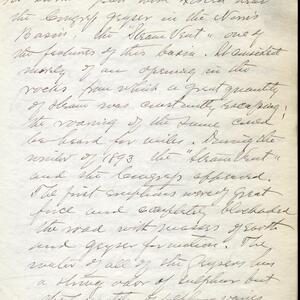 the Congress geyser in the Norris
Basin, the "Steam Vent" one of
the features of this basin. It consisted
merely of an opening in the
rocks, from which a great quantity
of steam was constantly escaping;
the roaring of the same could
be heard for miles. During the
winter of 1893 the "Steam Vent"
and the Congress appeared.
The first eruptions were of great
force and completely blockaded
the road with masses of earth
and geyser formation. The
water of all of the geysers has
a strong odor of sulphur but